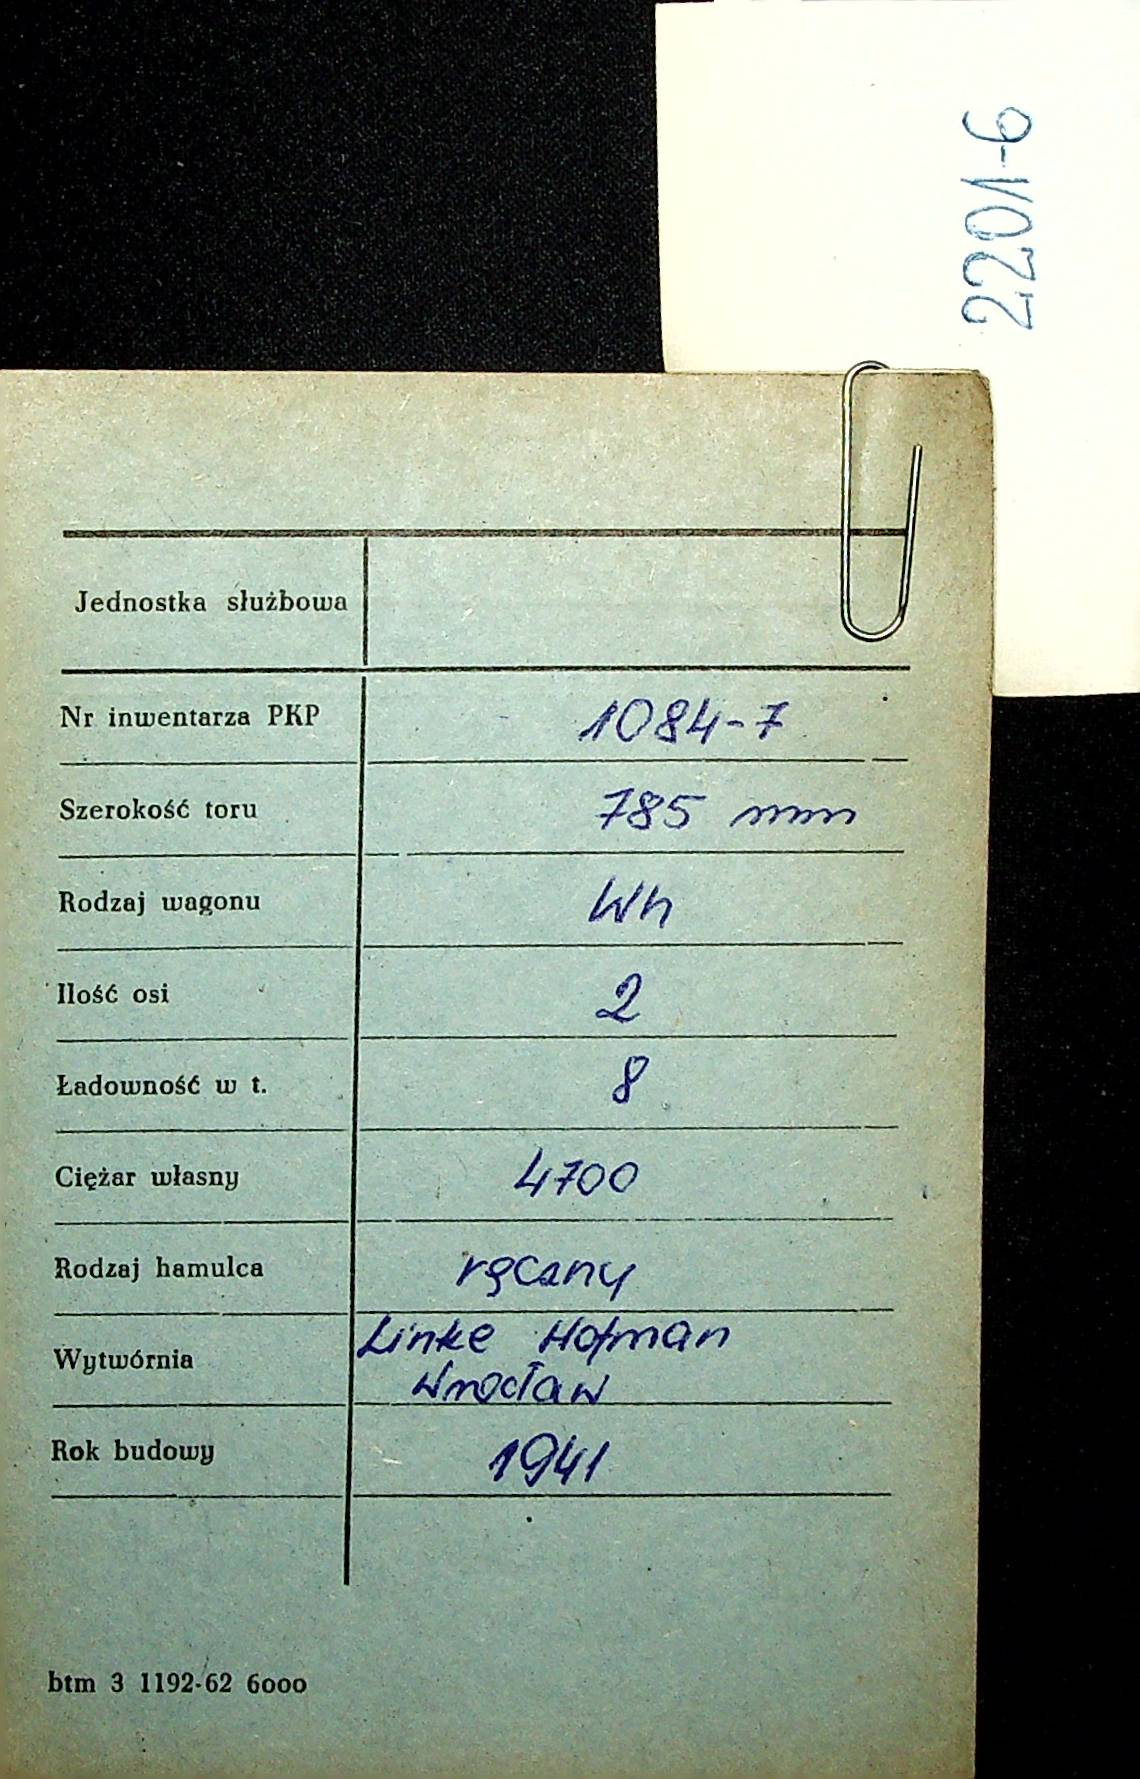 2201-6
Jednostka służbowa
Nr inwentarza PKP 1084-7
Szerokość toru 785 mm
Rodzaj wagonu Wh
Ilość osi 2
Ładowność w t. 8
Ciężar własny 4700
Rodzaj hamulca ręczny
Wytwórnia Linke Hofman
Wrocław
Rok budowy 1941
btm 3 1192-62 6000